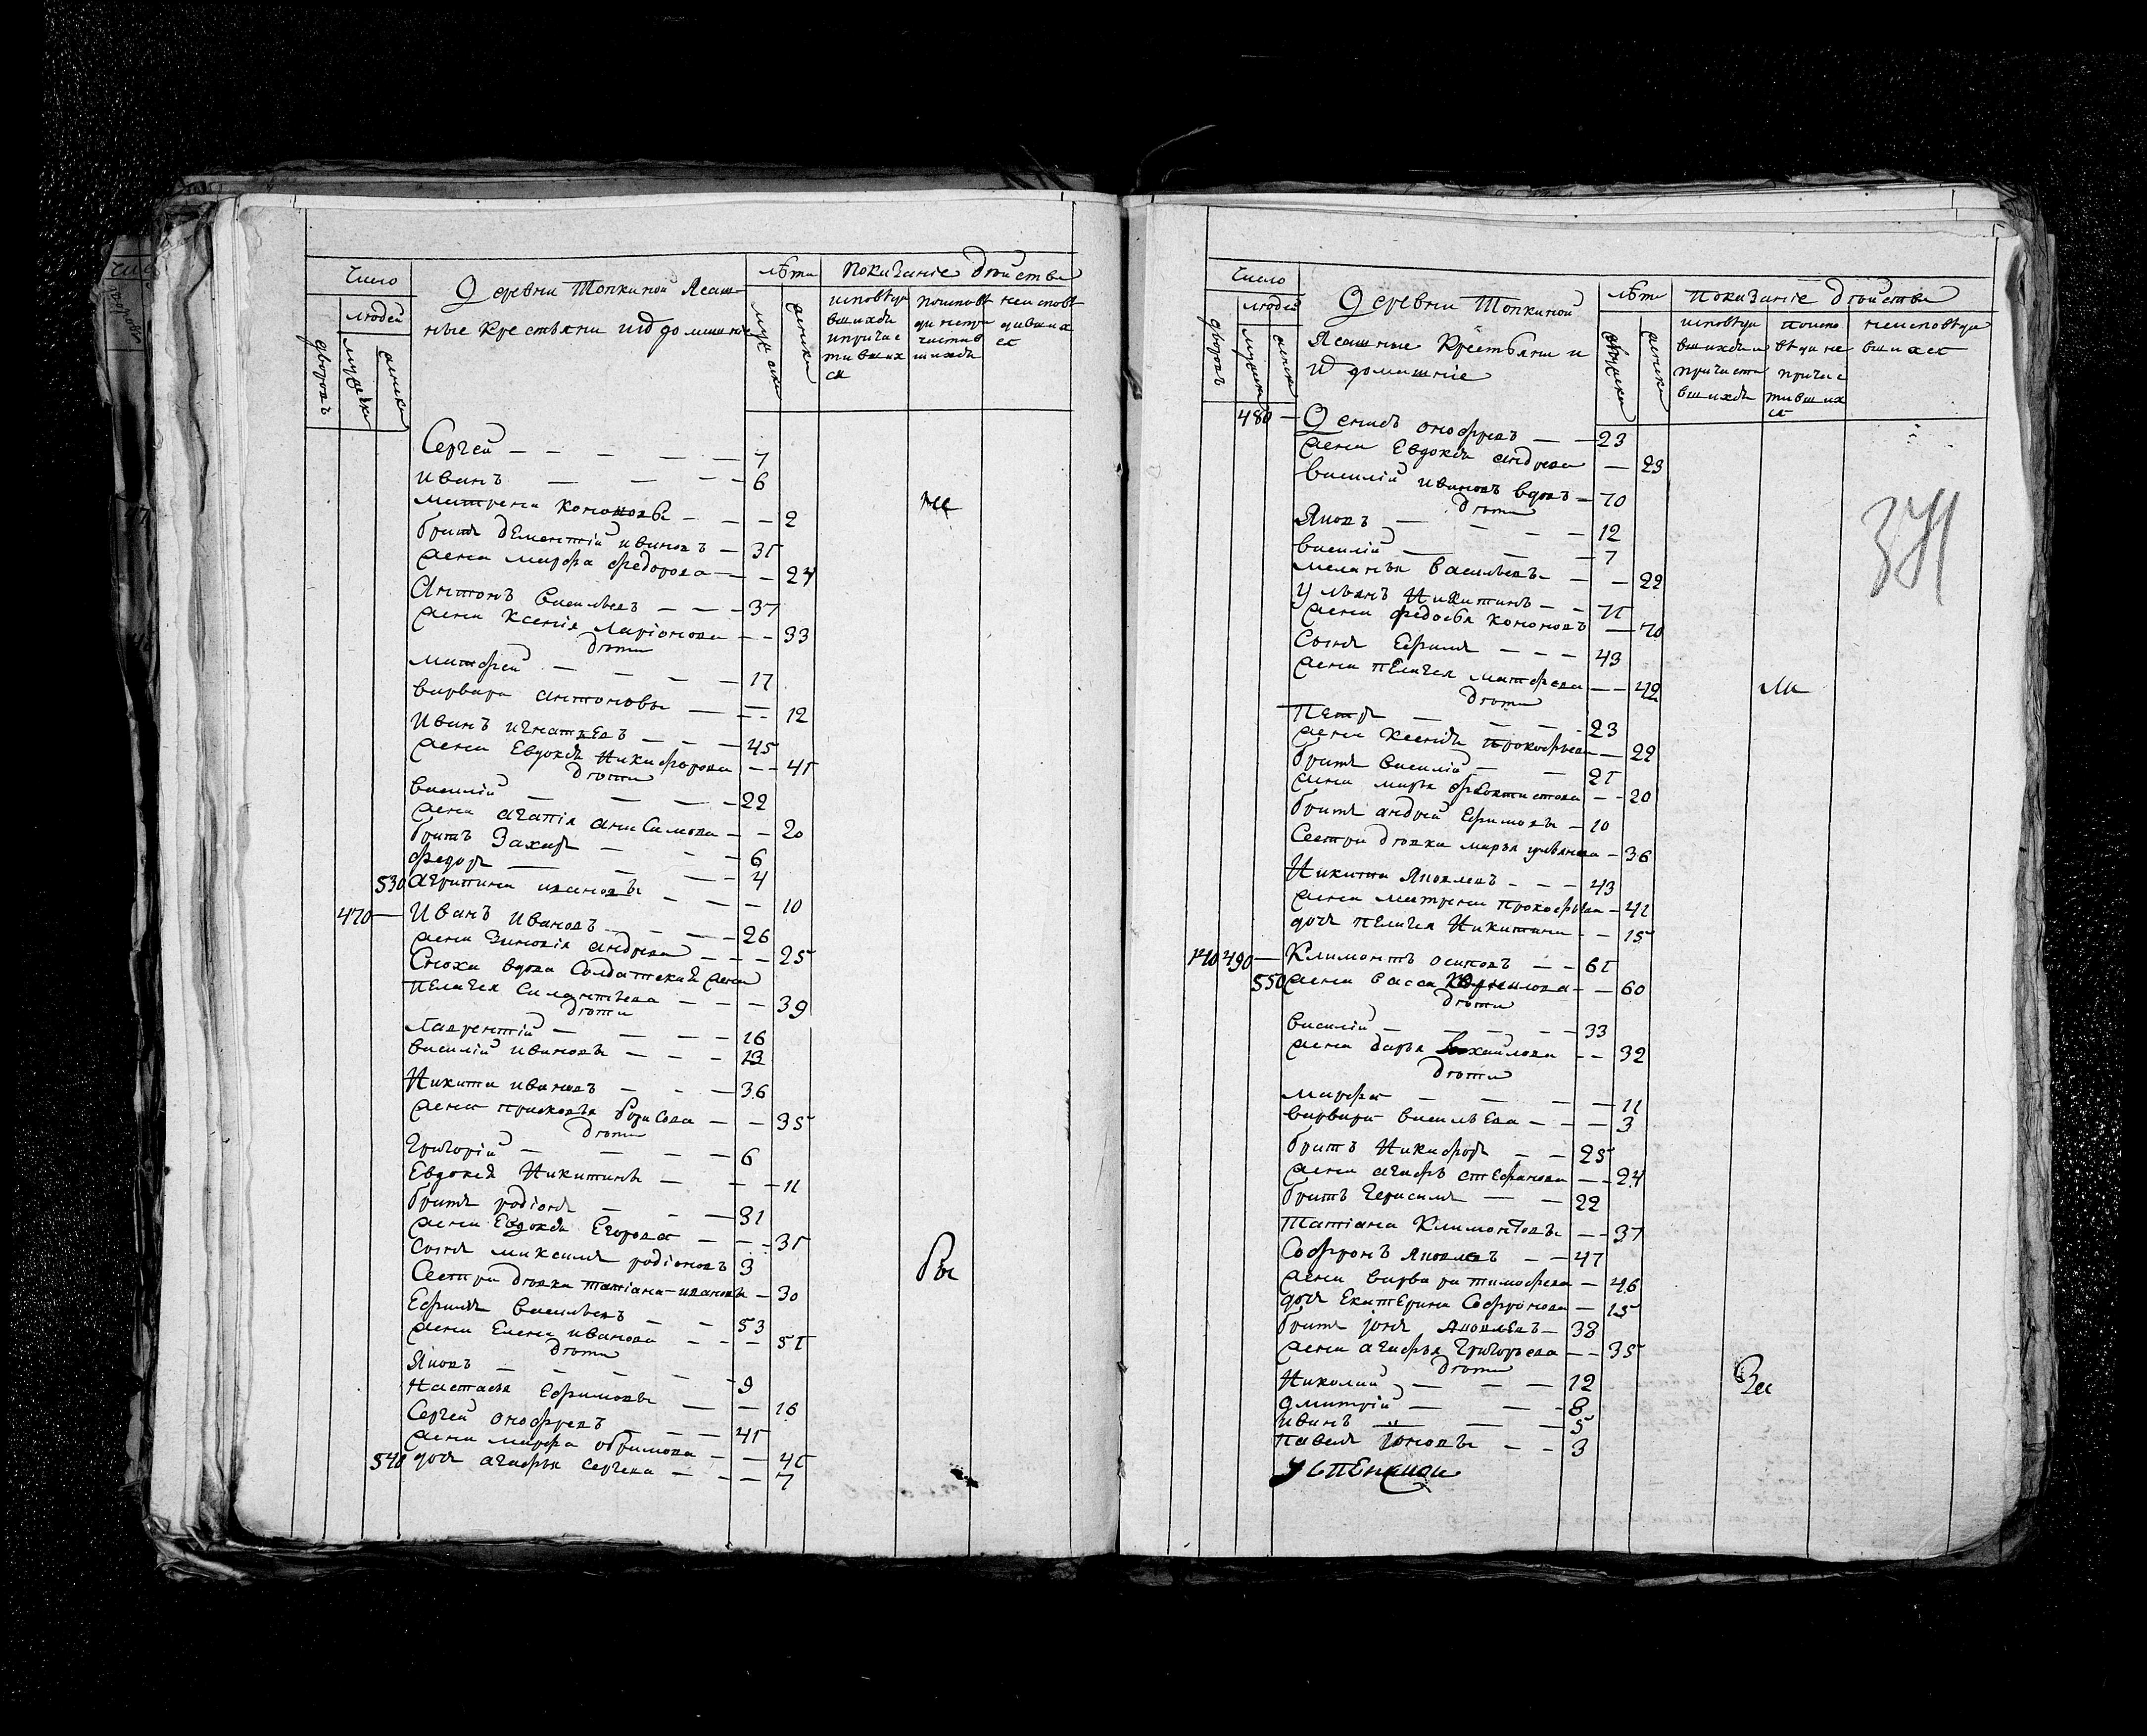 Число
людей
дворовъ
мужеска
женска
Деревни Топкиной Ясаш
ные Крестьяни ихъ домашние
лѣта
мужеска
женска
показаніе действа
исповѣда
вшихся
и причас
тивших
ся
поисповѣ
да непри
частив
шихся
неисповѣ
давших
ся
Сергей — 7
иванъ — 6
матрена Кононовы — 2
братъ Дементий ивановъ — 31
жена марфа федорова — 24
Антонъ Васильевъ — 37
жена Ксения Ларіонова — 33
дети
матфей — 17
варвара антоновы — 12
Иванъ игнатьевъ — 45
жена Евдокія Никифорова — 41
дети
василий — 22
жена агапія анисимова — 20
братъ Захаръ — 6
федоръ — 4
530 агрипина ивановы — 10
470 — Иванъ Ивановъ — 26
жена Зиновія андреева — 25
Сноха вдова Солдатская жена
пелагея Силантьева — 39
дети
Лаврентій — 16
василий ивановы — 13
Никита ивановъ — 36
жена прасковья борисова — 35
дети
Григорій — 6
Евдокия Никитины — 11
братъ родіонъ — 31
жена Евдокия Егорова — 31
сынъ максимъ родіоновъ 3
Сестра девка татіана ивановы — 30
Ефимъ Васильевъ — 53
жена Елена иванова — 51
дети
Яковъ — 9
Настасья Ефимовы — 16
Сергей онофреевъ — 41
жена марфа ефимова — 41
540 дочь агафья Сергеева — 7
не
бы
Число
людей
дворовъ
мужеска
женска
Деревни Топкиной
Ясашные Крестьяни и
ихъ домашніе
лѣта
мужеска
женска
показаніе действа
исповѣда
вшихся и
причасти
вшихся
поиспо
вѣди не
причас
тивших
ся
неисповѣда
вшихся
480 — Денисъ онофреевъ — 23
жена Евдокія андреева — 23
василий ивановъ вдовъ — 70
дети
Яковъ — 12
василий — 7
меланья васильевы — 22
ульянъ Никитинъ — 71
жена федосья Кононовъ — 70
Сынъ Ефимъ — 43
жена пелагея матфеева — 42
дети
Петръ — 23
жена Ксенія прокофьева — 22
братъ василий — 21
жена марья феоктистова — 20
братъ андрей Ефимовы — 10
Сестра девка марья ульянова — 36
Никита Яковлевъ — 43
жена матрена прокофьева — 41
дочь пелагея Никитина — 15
140 490 — Климонтъ осиповъ — 61
550 жена васса — 60
дети
василий — 33
жена дарья михайлова — 32
дети
марфа — 11
варвара васильева — 3
братъ Никифоръ — 25
жена агафья стефанова — 24
братъ Герасимъ — 22
Татіана Климонтовы — 37
Софронъ Яковлевъ — 47
жена варвара тимофеева — 46
дочь Екатерина Софронова — 15
братъ Іона Яковлевъ — 38
жена агафья Григорьева — 35
дети
Николай — 12
дмитрій — 8
иванъ — 5
павелъ Іоновы — 3
Успенской
ли
За
341